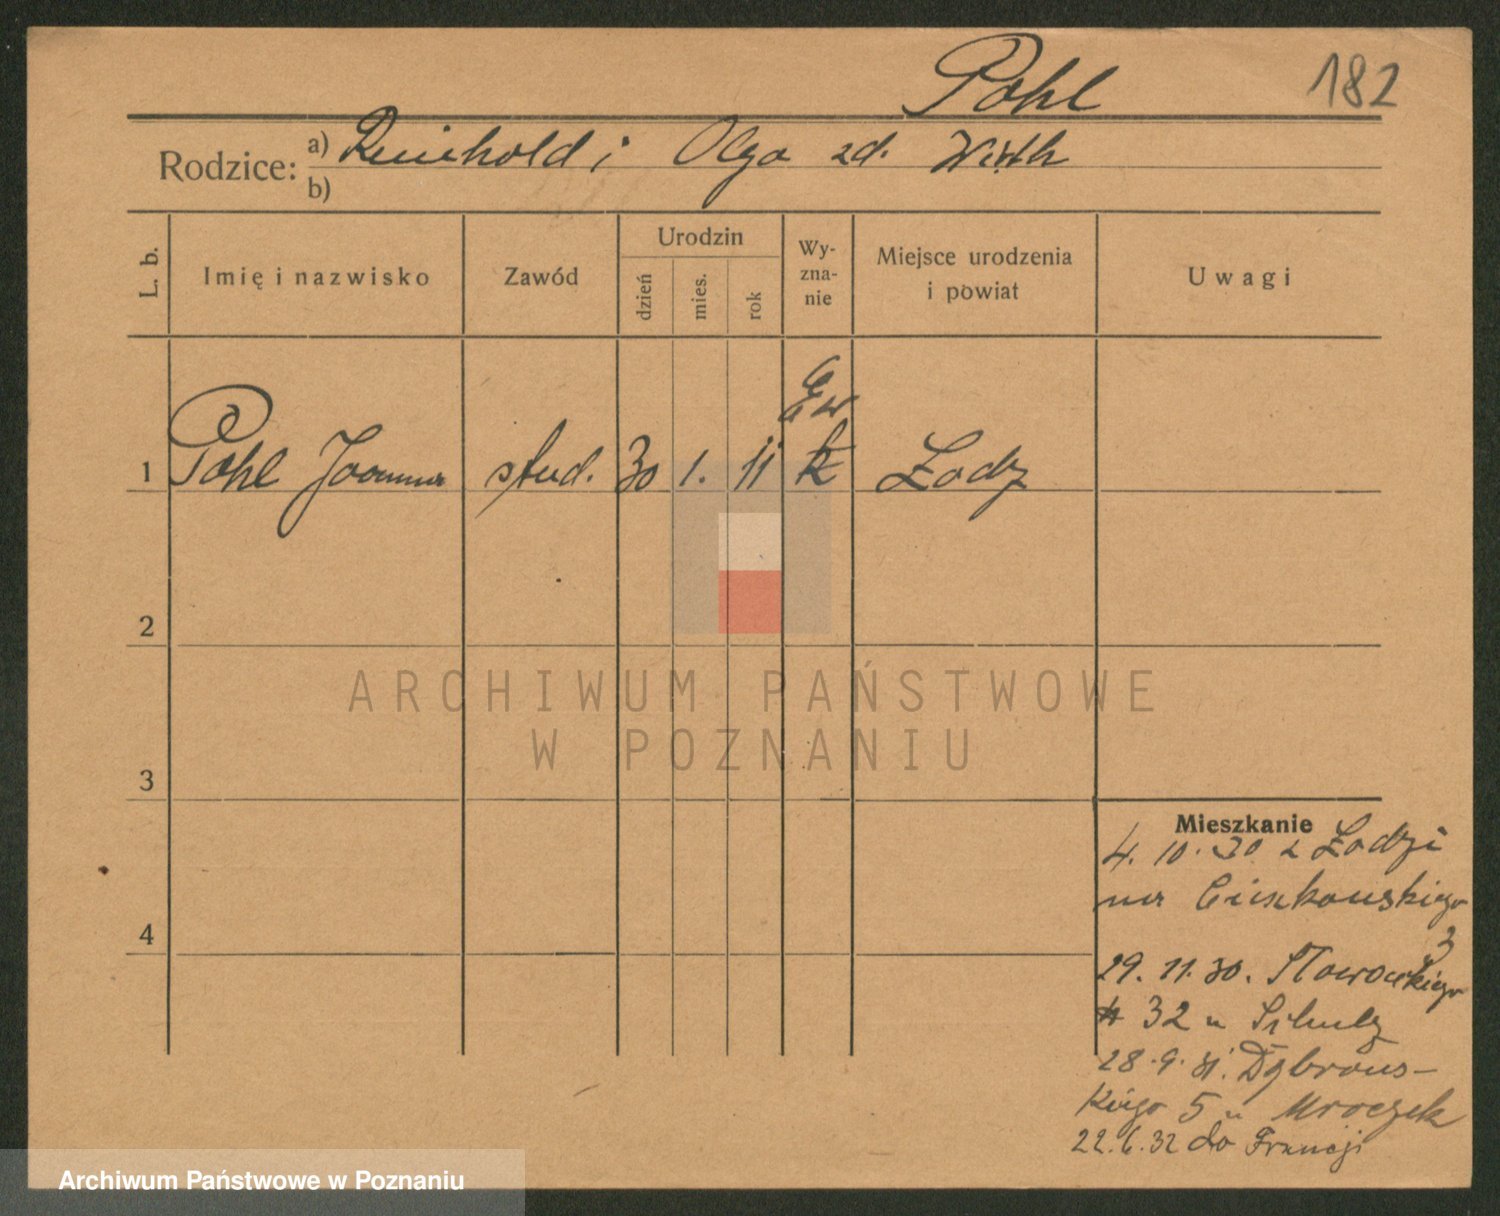 Pohl
182
Rodzice: a) Reinhold i Olga zd. Wirth
b)
L. b. Imię i nazwisko Zawód Urodzin dzień mies. rok Wy-zna-nie Miejsce urodzenia i powiat Uwagi
Ew
1 Pohl Joanna stud. 30 1. 11 k Łodz
2
ARCHIWUM PAŃSTWOWE
W POZNANIU
3
Mieszkanie
4. 10. 30 z Łodzi
na Cieszkowskiego
4
3
29. 11. 30. Słowackiego
32 u Schulz
28. 9. 31. Dąbrows-
kiego 5 u Mroczek
22. 6. 32 do Francji
Archiwum Państwowe w Poznaniu